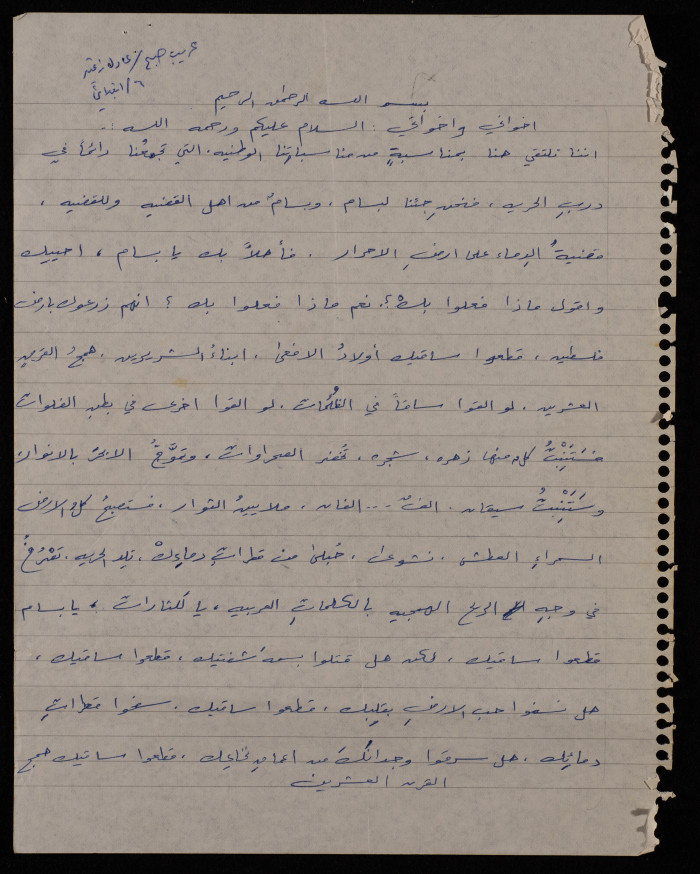 عريب صبح / عادله زعتر
٦ / ابتدائي
بسم الله الرحمن الرحيم
اخواني واخواتي : السلام عليكم ورحمة الله :-
اننا نلتقي هنا بمناسبةٍ من مناسباتِنا الوطنيه. التي تجمعُنا دائماً في
دربِ الحريه ، فنحنِ جئنا لبسام ، وبسامُ من اهل القضيه وللقضيه ،
قضيةُ الدِماء على ارضِ الاحرار . فأهلاً بك يا بسام ، احييك
واقول ماذا فعلوا بك ؟. نعم ماذا فعلوا بك ؟ انهم زرعوك بارض
فلسطين ، قطعوا ساقيك اولادُ الافعى ، ابناءُ الشريرين . همجُ القرنِ
العشرين . لو القوا ساقاً في الظُلُمات . لو القوا اخرى في بطنِ الفلوات
فسَتَنْبِتُ كل منها زهره ، شجره ، تخضر الصحراوات ، وتموَّجُ الابحر بالانوار
وسَتَنْبِتُ سيقان . الفٌ ... الفان . ملايينُ الثوار ، فستصبحُ كل الارض
السمراءِ العطشى . نشوى ، حُبلى من قطراتِ دماءِكْ . تلد الحريه . تَصْرُخُ
في وجهِ الهمجيه بالكلماتِ العربيه ، يا لَلثارات ، يا بسام
قطعوا ساقيك ، لكن هل قتلوا بسمة شفتيك ، قطعوا ساقيك ،
هل نسفوا حب الارضِ بقلبِك ، قطعوا ساقيك . سفحوا قطراتِ
دمائِك . هل سرقوا وجدانَكَ من اعماقِ نخاعِك ، قطعوا ساقيك همج
القرن العشرين